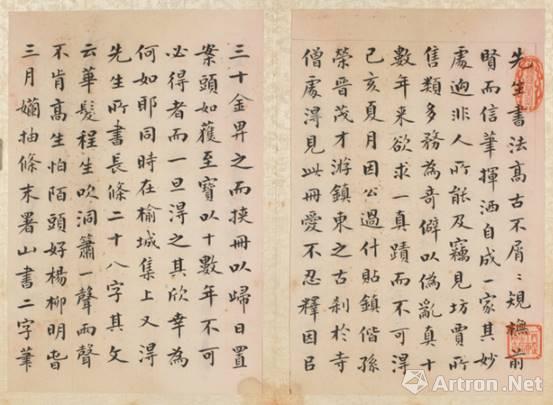 先生書法高古不屑〻規橅前
賢而信筆揮洒自成一家其妙
處迥非人所能及竊見坊賈所
售類多務為奇僻以偽亂真十
數年來欲求一真蹟而不可得
己亥夏月因公過什貼鎮偕孫
榮晉茂才游鎮東之古刹於寺
僧處得見此冊愛不忍釋因㠯
三十金畀之而挾冊以歸日置
案頭如獲至寶以十數年不可
必得者而一旦得之其欣幸為
何如耶同時在榆城集上又得
先生所書長條二十八字其文
云華髮程生吹洞簫一聲兩聲
不肯高生怕陌頭好楊柳明
三月嬾抽條末署山書二字筆
Artron.Net